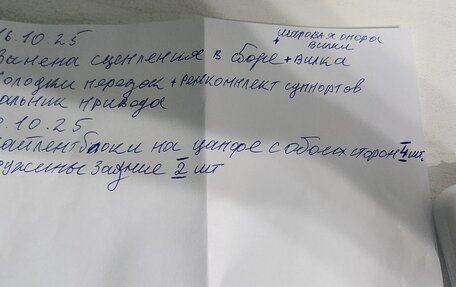 16.10.25
+ шаровая опора вилки
замена сцепление в сборе + вилка
колодки передок + ремкомплект суппортов
сальник привода
.10.25
сайлентблоки на цапфе с обоих сторон 4 шт.
пружины задние 2 шт